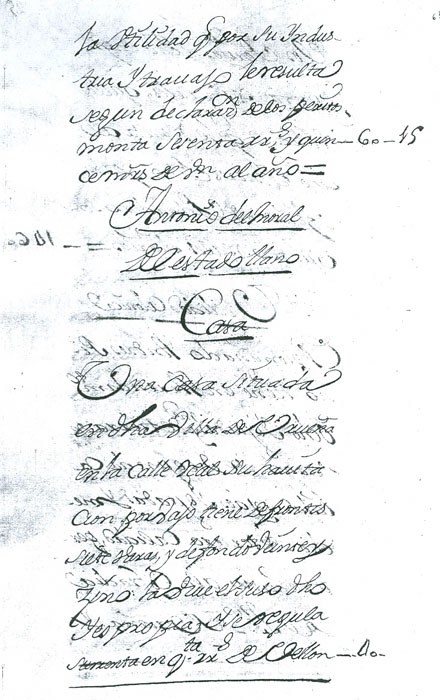 la utilidad q̃ por su Yndus-
tria Y travajo le resulta
segun declararⁿ de los peritos
monta sesenta rr.ˢ y quin— 60 — 15
ce mrs de vⁿ al año=
Antonio del
Del estado llano
Casa
Una Casa situada
en dha Villa de
en la Calle Real su havita
cion por vajo tiene de frontis
siete varas, y de fondo veinte y
uno la Vive el suso dho
Y es propia Y se regula
su renta en q.ᵗᵃ rr.ˢ de Vellon — 40-